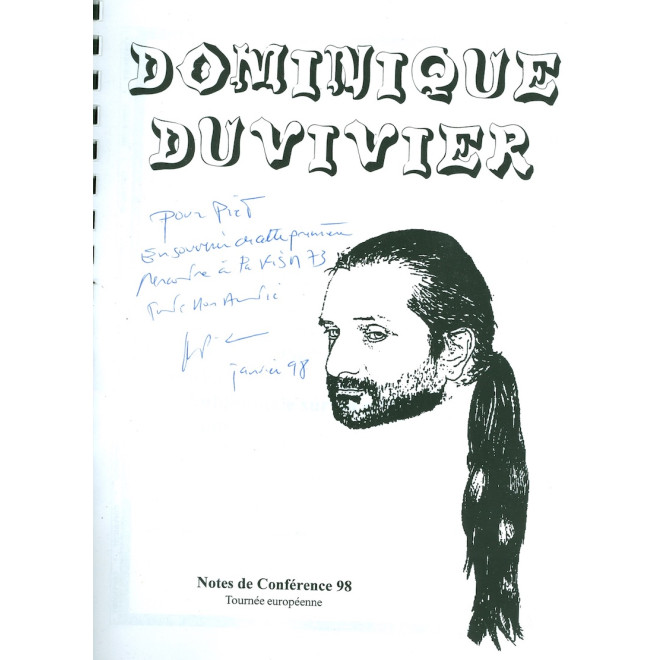 DOMINIQUE
DUVIVIER
pour Piet
En souvenir de cette première
Rencontre à
Toute Mon Amitié
janvier 98
Notes de Conférence 98
Tournée européenne